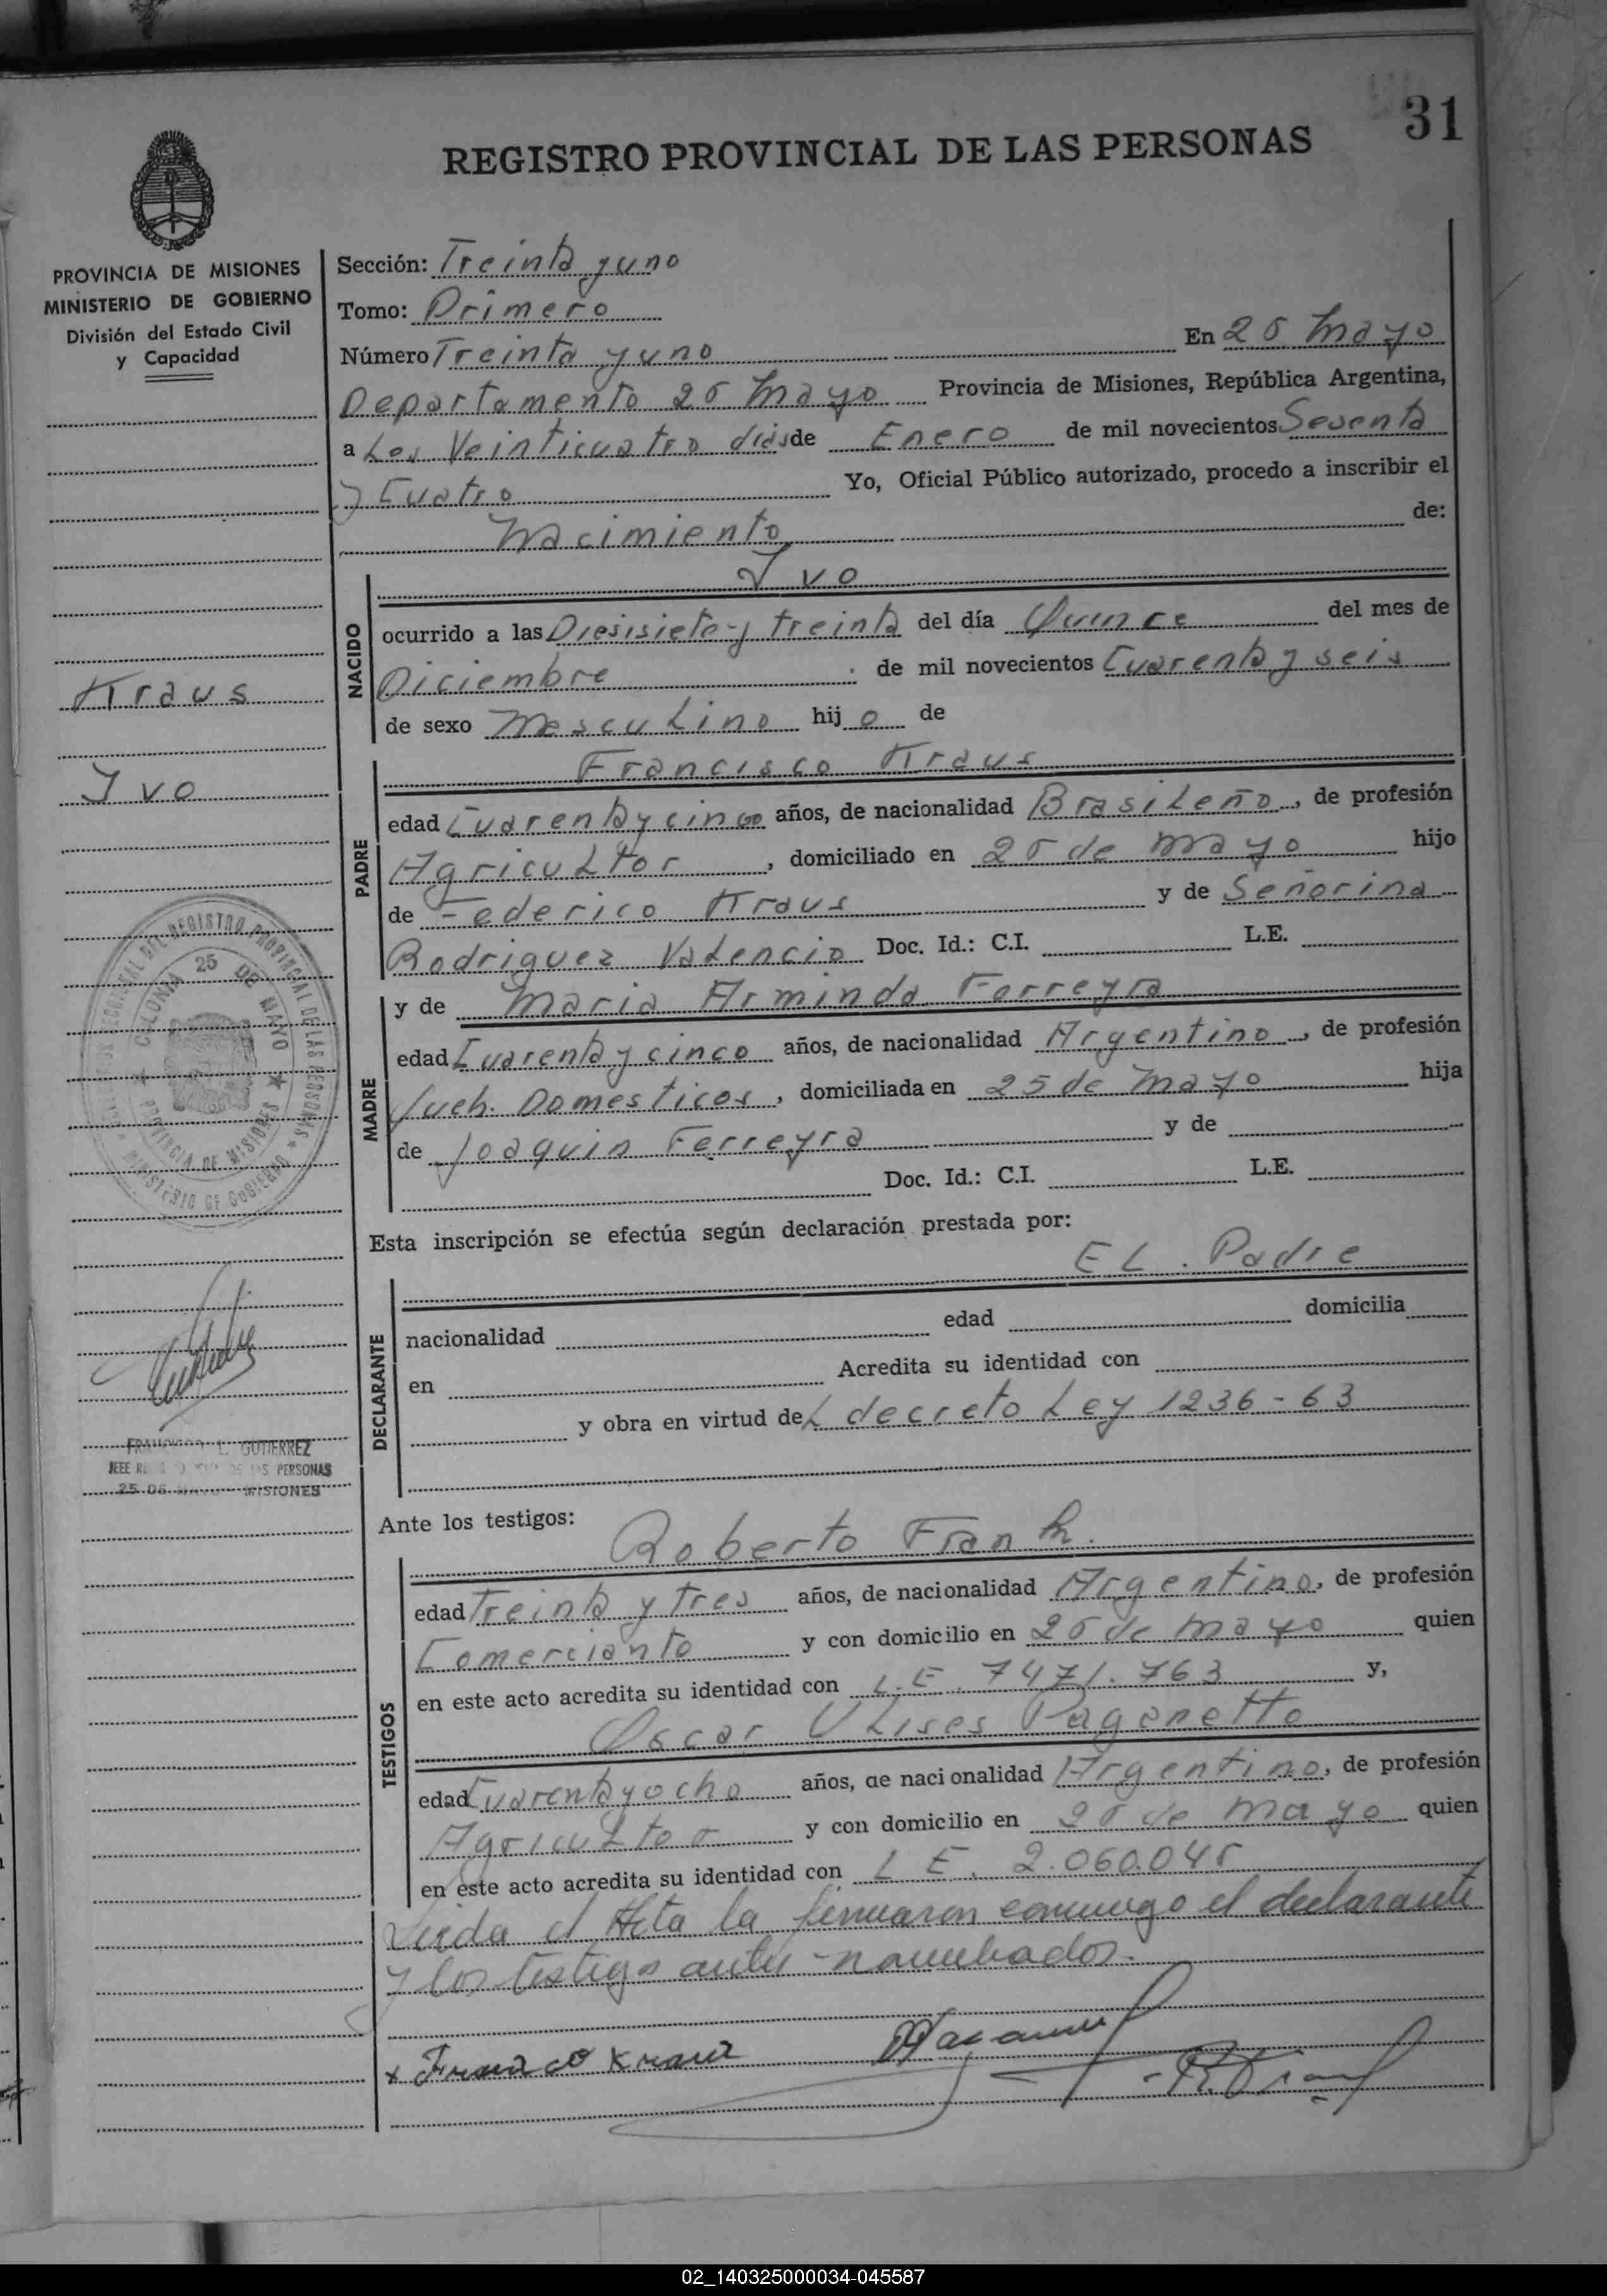 31
REGISTRO PROVINCIAL DE LAS PERSONAS
PROVINCIA DE MISIONES
MINISTERIO DE GOBIERNO
División del Estado Civil
y Capacidad
Kraus
Ivo
COLONIA 25 DE MAYO
PROVINCIA DE MISIONES
MINISTERIO DE GOBIERNO
GUTIERREZ
PERSONAS
MISIONES
Sección: Treinta y uno
Tomo: Primero
Número Treinta y uno En 25 Mayo
Departamento 25 Mayo Provincia de Misiones, República Argentina,
a Los Veinticuatro dias de Enero de mil novecientos Setenta
y Cuatro Yo, Oficial Público autorizado, procedo a inscribir el
Nacimiento de:
NACIDO
Ivo
ocurrido a las Diesisiete y treinta del día Quince del mes de
Diciembre de mil novecientos Cuarenta y seis
de sexo Masculino hijo de
PADRE
Francisco Kraus
edad Cuarenta y cinco años, de nacionalidad Brasileño, de profesión
Agricultor, domiciliado en 25 de Mayo hijo
de Federico Kraus y de Señorina
Rodriguez Valencio Doc. Id.: C.I. L.E.
MADRE
y de Maria Arminda Ferreyra
edad Cuarenta y cinco años, de nacionalidad Argentina, de profesión
Queh. Domesticos, domiciliada en 25 de Mayo hija
de Joaquin Ferreyra y de
Doc. Id.: C.I. L.E.
Esta inscripción se efectúa según declaración prestada por:
DECLARANTE
EL Padre
nacionalidad edad domicilia
en Acredita su identidad con
y obra en virtud deL decreto Ley 1236-63
Ante los testigos:
TESTIGOS
Roberto Frank.
edad Treinta y tres años, de nacionalidad Argentino, de profesión
Comerciante y con domicilio en 25 de Mayo quien
en este acto acredita su identidad con L.E. 7471.763 y,
Oscar Ulises Paganetto
edad Cuarenta y ocho años, de nacionalidad Argentino, de profesión
Agricultor y con domicilio en 25 de Mayo quien
en este acto acredita su identidad con L E. 2.060.045
Leida el Acta la firmaron conmigo el declarante
y los testigos antes-nombrados.
x Kraus
02_140325000034-045587